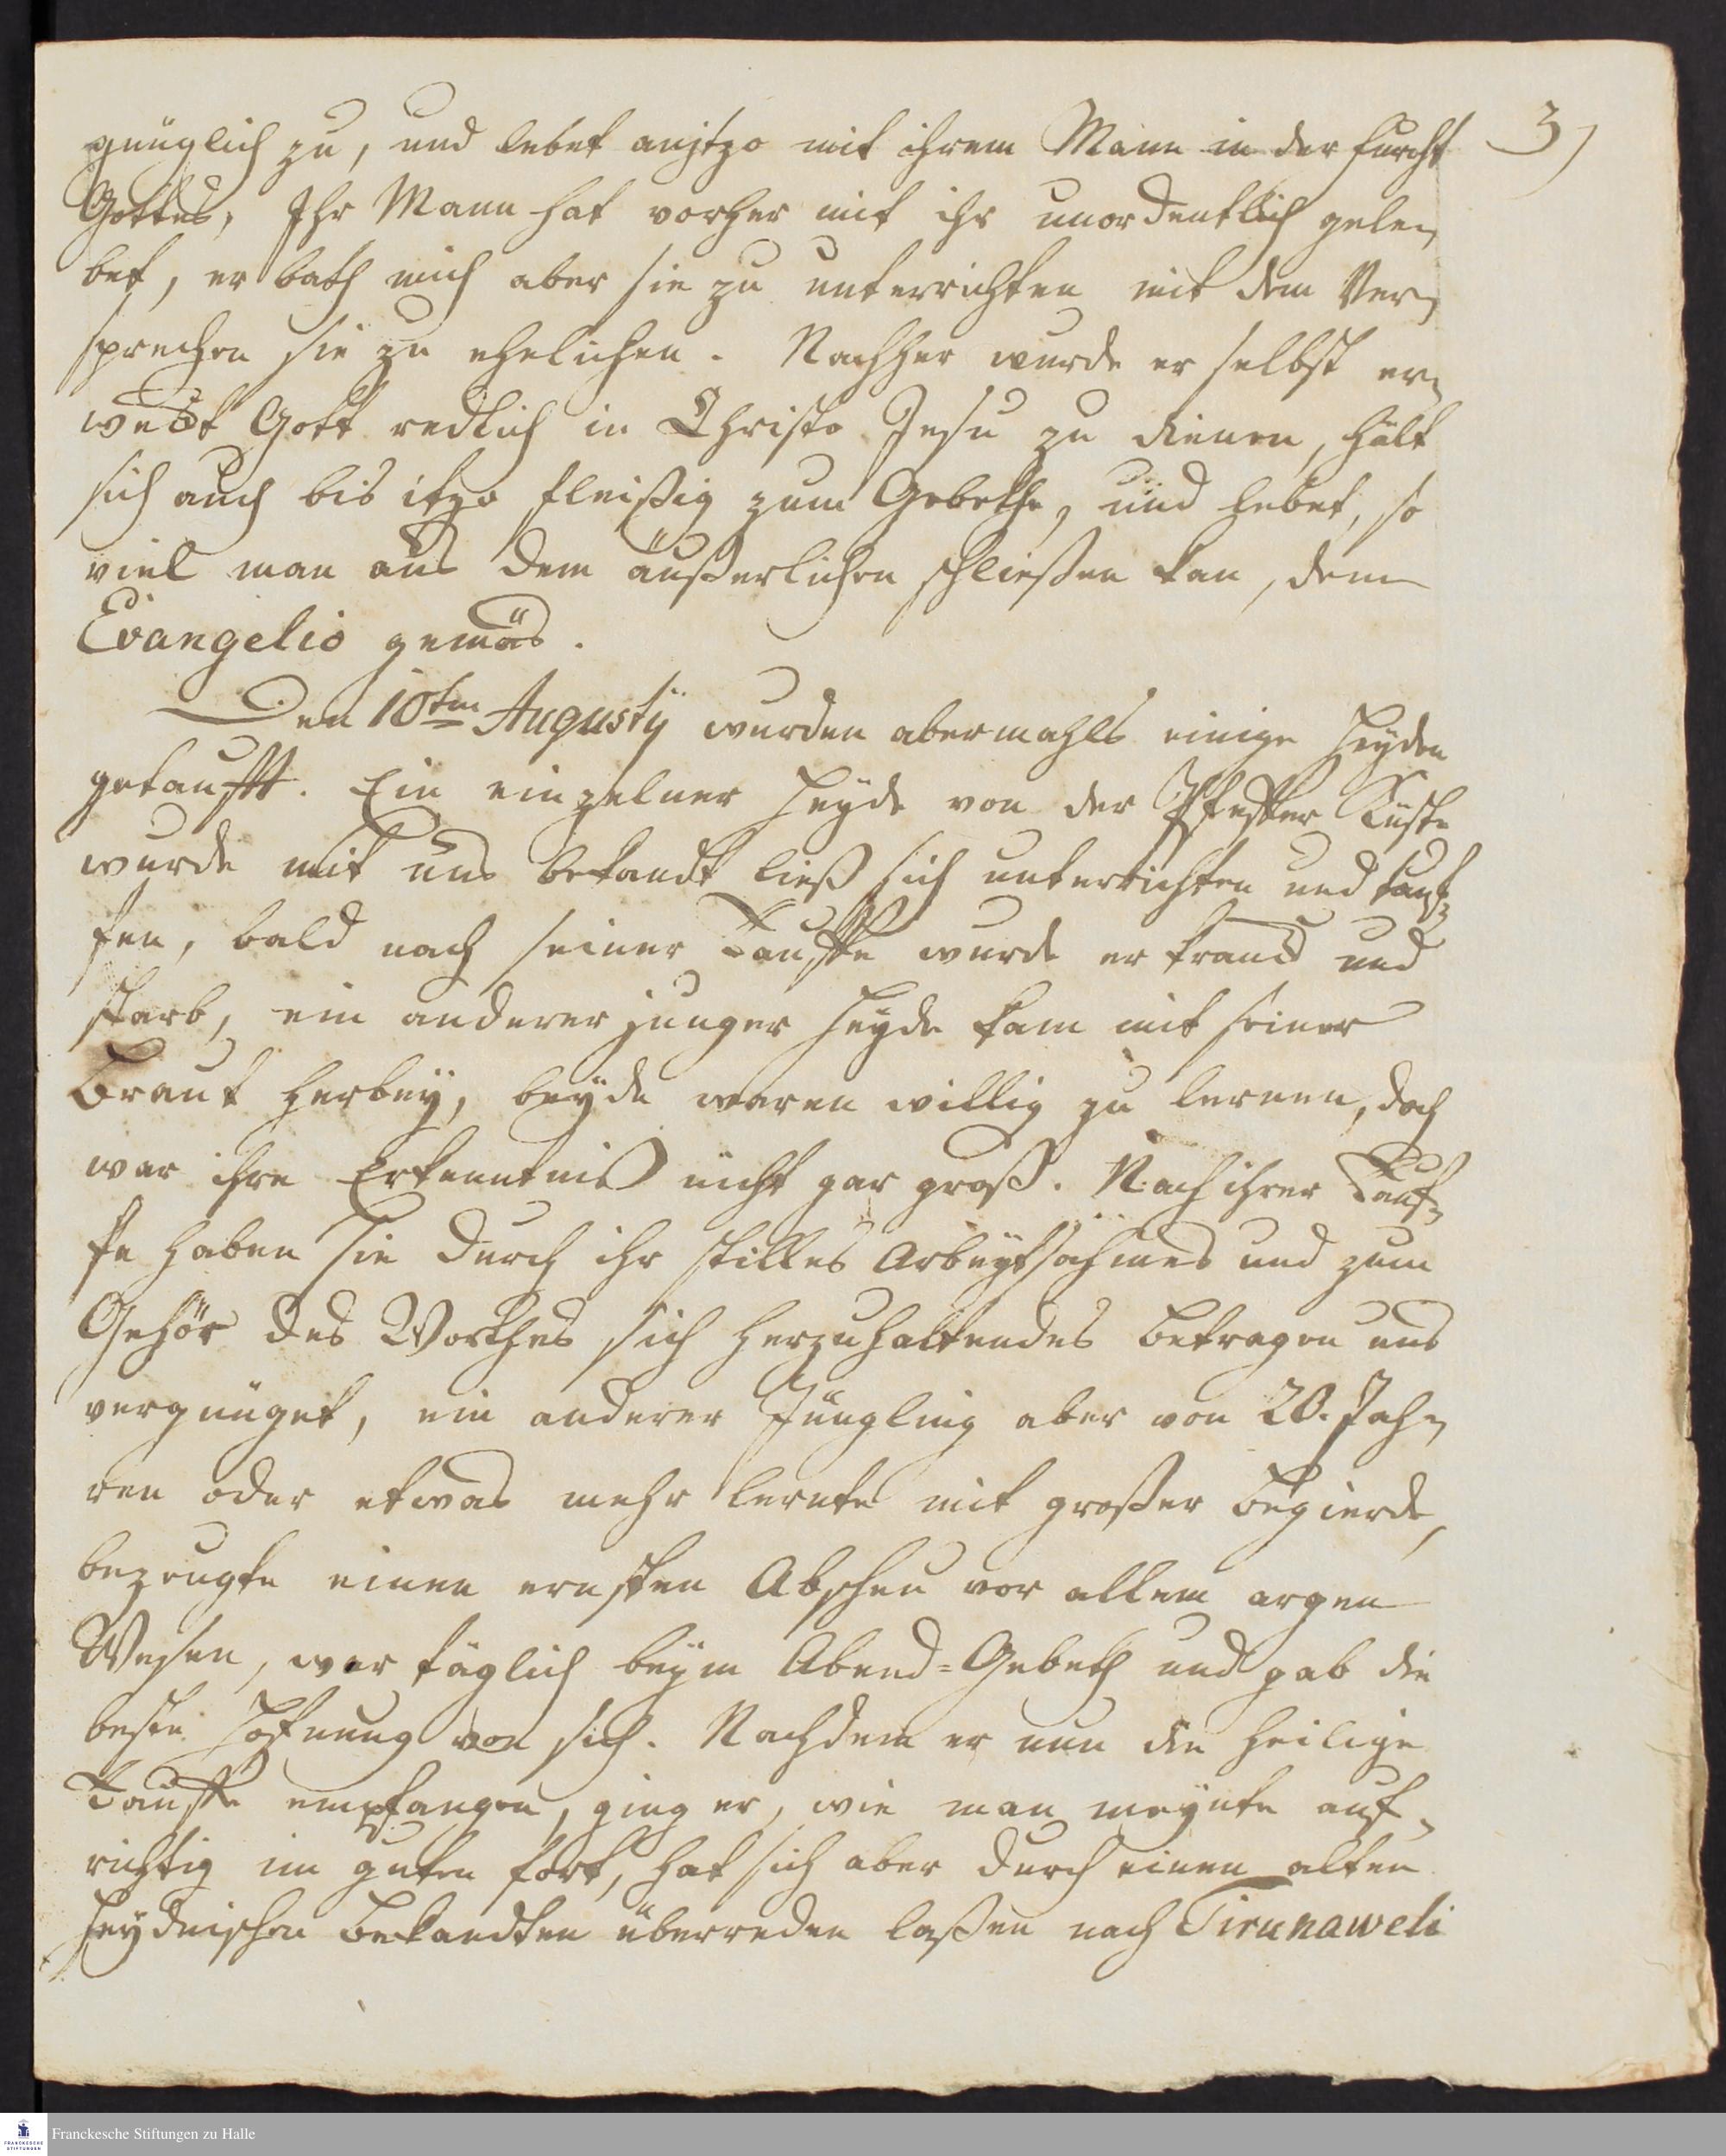 3)
gnüglich zu, und lebet anjtzo mit ihrem Mann in der Furcht
Gottes, Ihr Mann hat vorher mit ihr unordentlich gele-
bet, er bath mich aber sie zu unterrichten mit dem Ver-
sprechen sie zu ehelichen. Nachher wurde er selbst er-
weckt Gott redlich in Christo Jesu zu dienen, hält
sich auch bis itzo fleißig zum Gebethe, und lebet, so
viel man aus dem äußerlichen schließen kan, dem
Evangelio gemäs.
Den 10ten Augustij wurden abermahls einige Heyden
getaufft. Ein einzelner Heyde von der Pfeffer Küste
wurde mit uns bekandt ließ sich unterrichten und tauf-
fen, bald nach seiner Tauffe wurde er kranck und
starb, ein anderer junger Heyde kam mit seiner
Braut herbey, beyde waren willig zu lernen, doch
war ihre Erkenntniß nicht gar groß. Nach ihrer Tauf-
fe haben sie durch ihr stilles arbeytsahmes und zum
Gehör des Worthes sich herzuhaltendes betragen uns
vergnüget, ein anderer Jüngling aber von 20. Jah-
ren oder etwas mehr lernte mit großer Begierde,
bezeugte einen ernsten Abscheu vor allem argen
Wesen, war täglich beym Abend=Gebeth und gab die
beste Hofnung von sich. Nachdem er nun die heilige
Tauffe empfangen, ging er, wie man meynte auf-
richtig im guten fort, hat sich aber durch einen alten
Heydnischen Bekandten überreden laßen nach Tirunaweli
Franckesche Stiftungen zu Halle
FRANCKESCHE
STIFTUNGEN